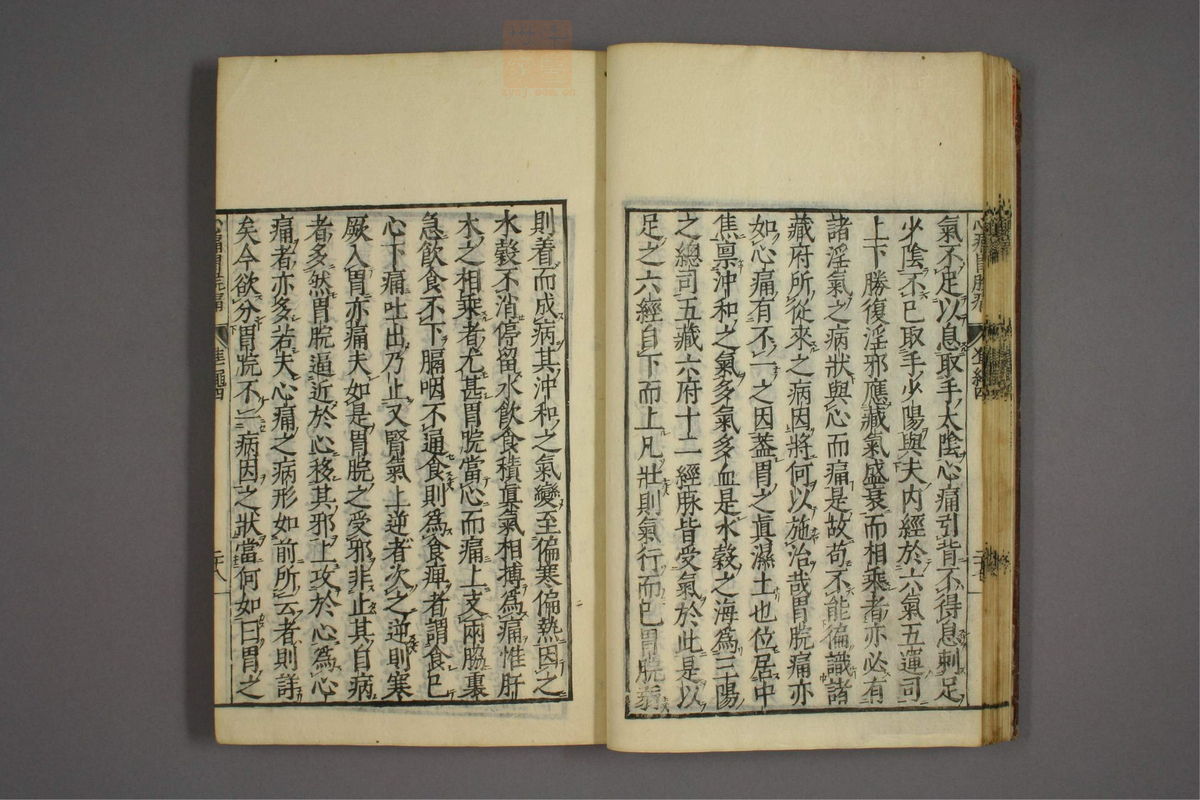 氣不足以息取手太陰心痛引背不得息刺足
少陰不已取手少陽與夫內經於六氣五運司
上下勝復淫邪應藏氣盛衰而相乘者亦必有
諸淫氣之病狀與心而痛是故苟不能徧識諸
藏府所從來之病因將何以施治哉胃脘痛亦
如心痛有不一之因蓋胃之眞濕土也位居中
焦禀沖和之氣多氣多血是水穀之海爲三陽
之總司五藏六府十二經脉皆受氣於此是以
足之六經自下而上凡壯則氣行而已胃脘弱
則着而成病其沖和之氣變至偏寒偏熱因之
水穀不消停留水飮食積眞氣相搏爲痛惟肝
木之相乘者尤甚胃脘當心而痛上支兩脇裏
急飮食不下膈咽不通食則爲食痺者謂食已
心下痛吐出乃止又腎氣上逆者次之逆則寒
厥入胃亦痛夫如是胃脘之受邪非止其自病
者多然胃脘逼近於心移其邪上攻於心爲心
痛者亦多若夫心痛之病形如前所云者則詳
矣今欲分胃脘不一病因之狀當何如曰胃之
心痛胃脘痛 准繩四 二十八